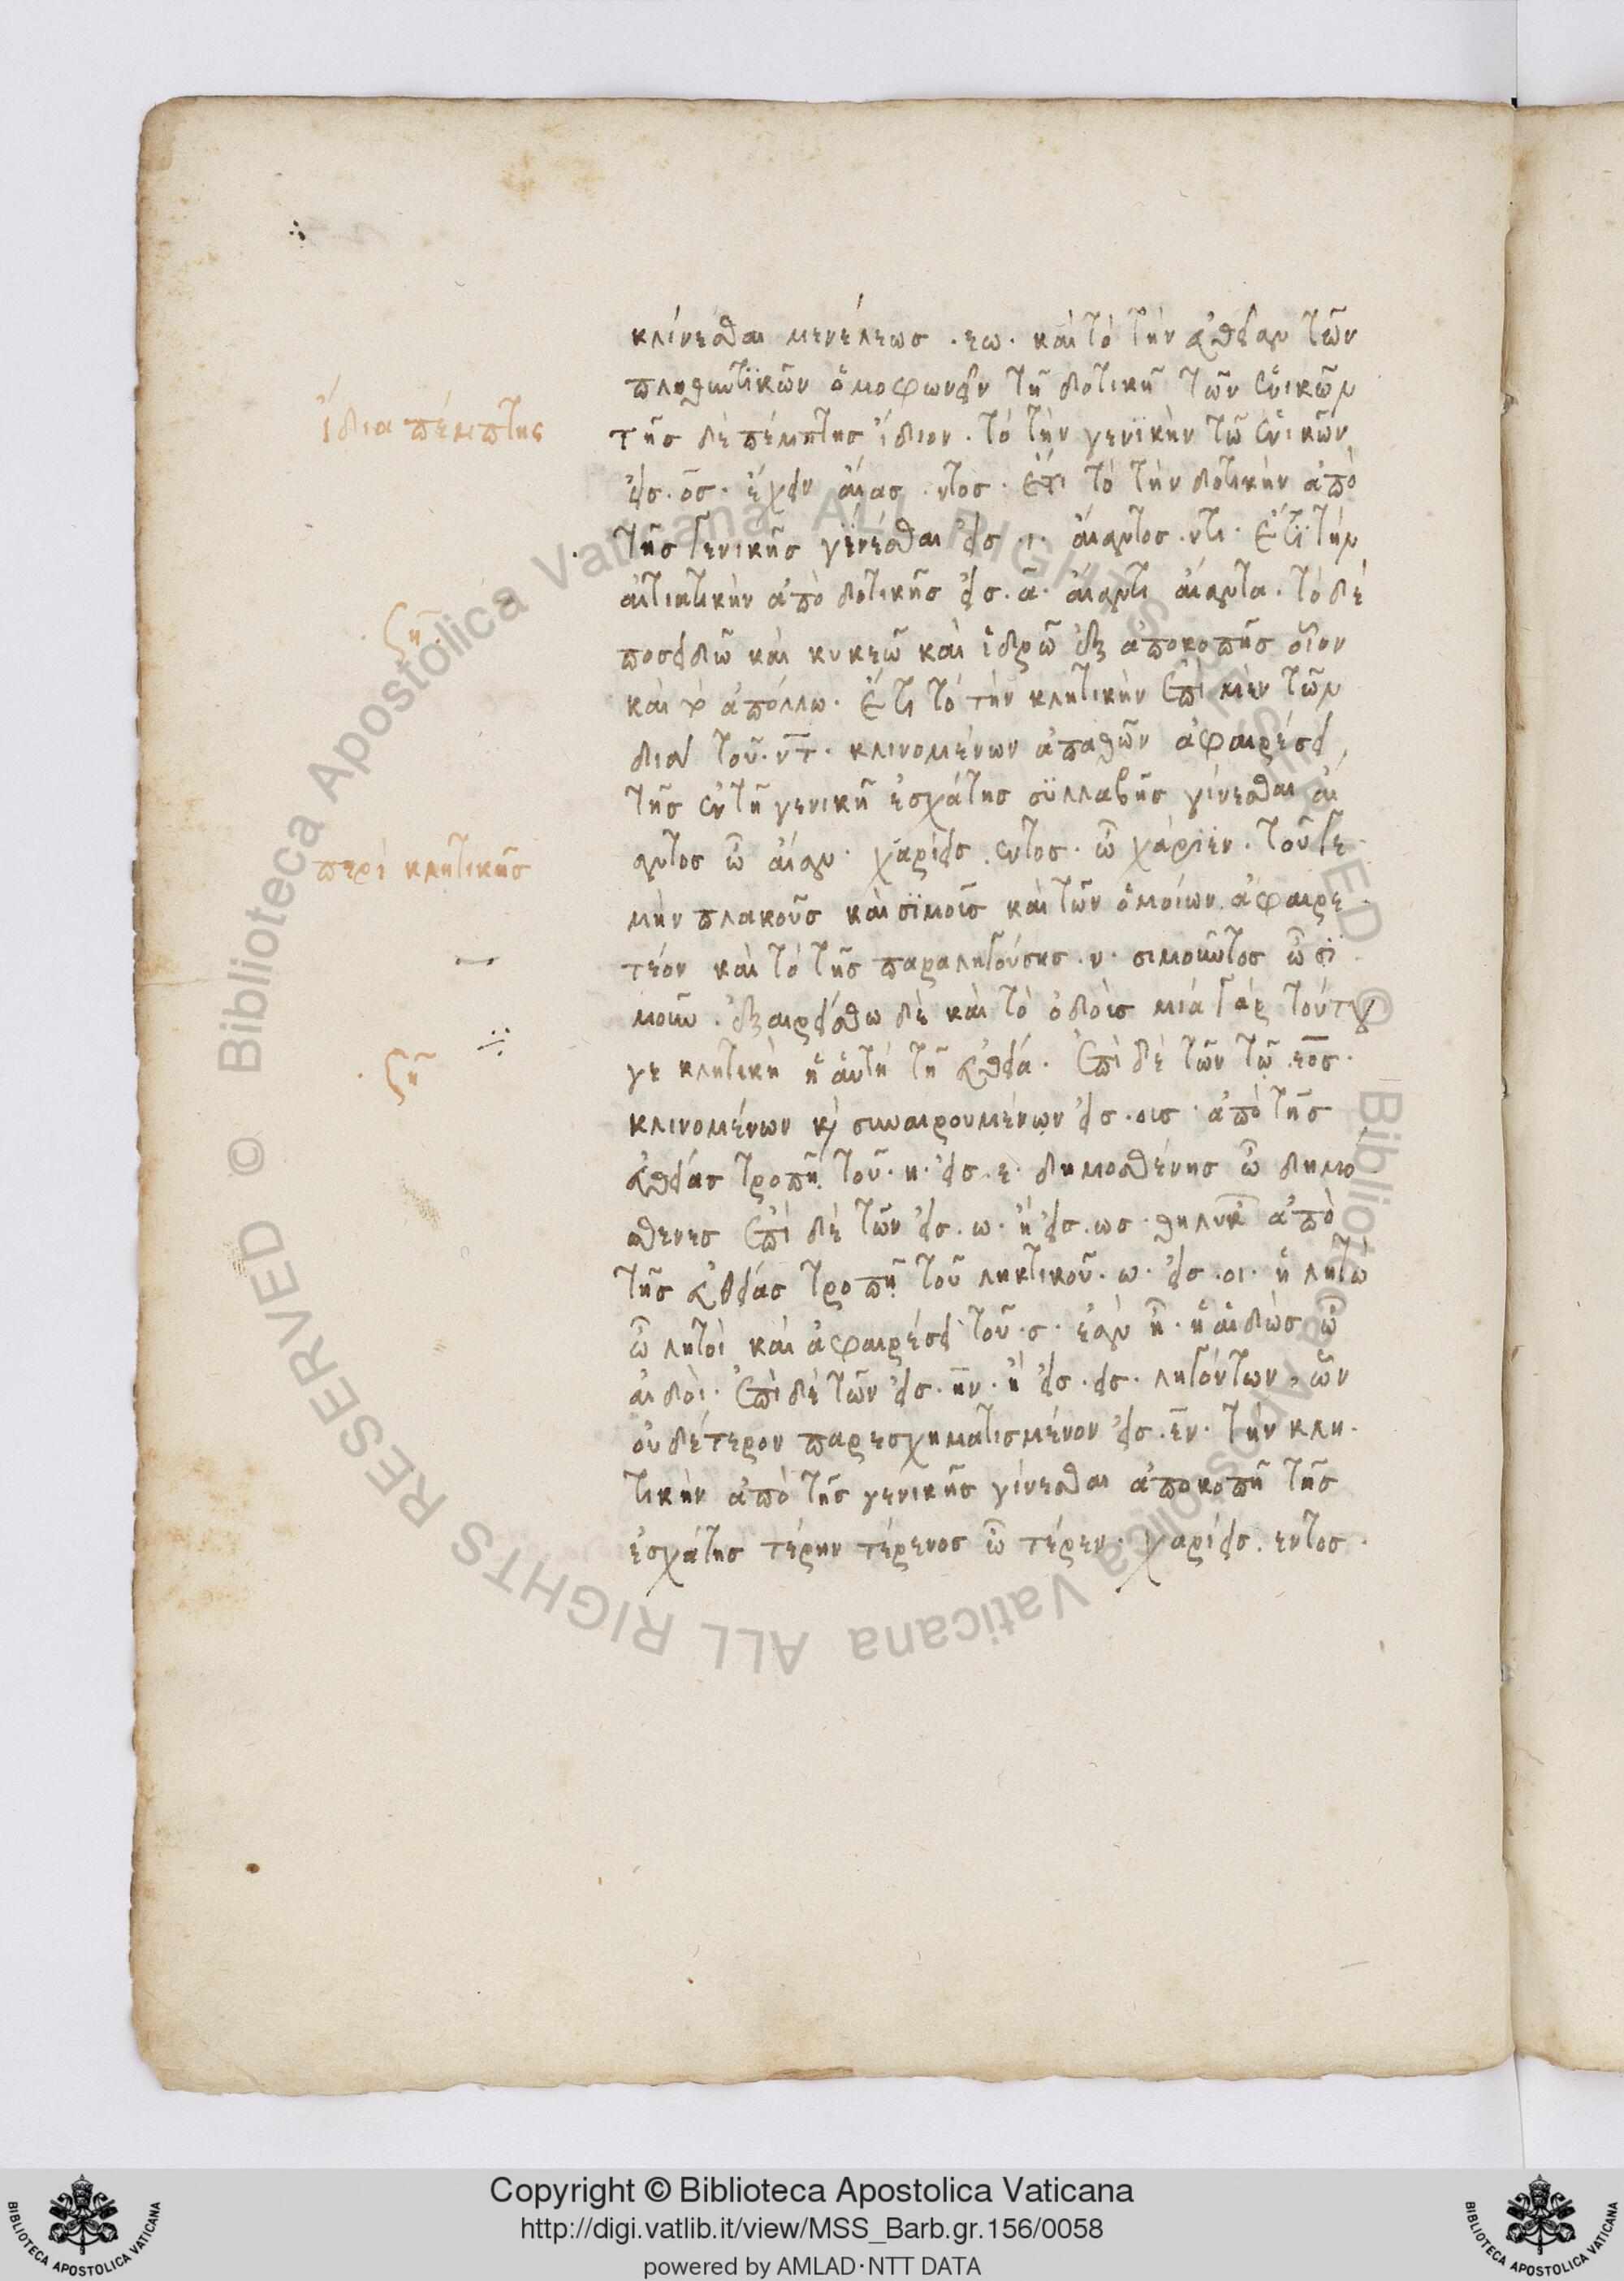 κλίνεσθαι μενέλεως · εω · καὶ τὸ τὴν εὐθεῖαν τῶν
πληθυντικῶν ὁμοφωνεῖν τῇ δοτικῇ τῶν ἑνικῶν
ἴδια πέμπτης
τῆς δὲ πέμπτης ἴδιον · τὸ τὴν γενικὴν τῶν ἑνικῶν
εἰς · ος · ἔχειν αἴας · ντος · ἔτι τὸ τὴν δοτικὴν ἀπὸ
τῆς γενικῆς γίνεσθαι εἰς · ι · αἴαντος · ντι · ἔτι τὴν
αἰτιατικὴν ἀπὸ δοτικῆς εἰς · α · αἴαντι αἴαντα · τὸ δὲ
ση
ποσειδῶ καὶ κυκεῶ καὶ ἱδρῶ ἐξ ἀποκοπῆς οἷον
καὶ τὸ ἀπόλλω · ἔτι τὸ τὴν κλητικὴν ἐπὶ μὲν τῶν
διὰ τοῦ · ντ · κλινομένων ἀπαθῶν ἀφαιρέσει
τῆς ἐν τῇ γενικῇ ἐσχάτης συλλαβῆς γίνεσθαι αἴ
περὶ κλητικῆς
αντος ὦ αἴαν · χαρίεις · εντος · ὦ χάριεν · τοῦ γε
μὴν πλακοῦς καὶ σιμοῖς καὶ τῶν ὁμοίων ἀφαιρε
τέον καὶ τὸ τῆς παραληγούσης · ν · σιμοῦντος ὦ σι
μοῦ · ἐξαιρείσθω δὲ καὶ τὸ ὀδοὶς μία γὰρ τούτου
ση
γε κλητικὴ ἡ αὐτὴ τῇ εὐθεία · ἐπὶ δὲ τῶν τῶ · εος ·
κλινομένων καὶ συναιρουμένων εἰς · οις · ἀπὸ τῆς
εὐθείας τροπῇ τοῦ · η · εἰς · ε · δημοσθένης ὦ δημο
σθενες ἐπὶ δὲ τῶν εἰς · ω · ἢ εἰς · ως · θηλυκ ἀπὸ
τῆς εὐθείας τροπῇ τοῦ ληκτικοῦ · ω · εἰς · οι · ἡ λητὼ
ὦ λητοὶ καὶ ἀφαιρέσει τοῦ · ς · ἐὰν ᾖ · ἡ αἰδὼς ὦ
αἰδοὶ · ἐπὶ δὲ τῶν εἰς · ην · ἢ εἰς · εις · ληγόντων, ὧν
οὐδέτερον παρεσχηματισμένον εἰς · εν · τὴν κλη
τικὴν ἀπὸ τῆς γενικῆς γίνεσθαι ἀποκοπῇ τῆς
ἐσχάτης τέρην τέρενος ὦ τέρεν · χαρίεις · εντος ·
Copyright © Biblioteca Apostolica Vaticana
http://digi.vatlib.it/view/MSS_Barb.gr.156/0058
powered by AMLAD·NTT DATA
BIBLIOTECA APOSTOLICA VATICANA
BIBLIOTECA APOSTOLICA VATICANA
© Biblioteca Apostolica Vaticana ALL RIGHTS RESERVED © Biblioteca Apostolica Vaticana ALL RIGHTS RESERVED